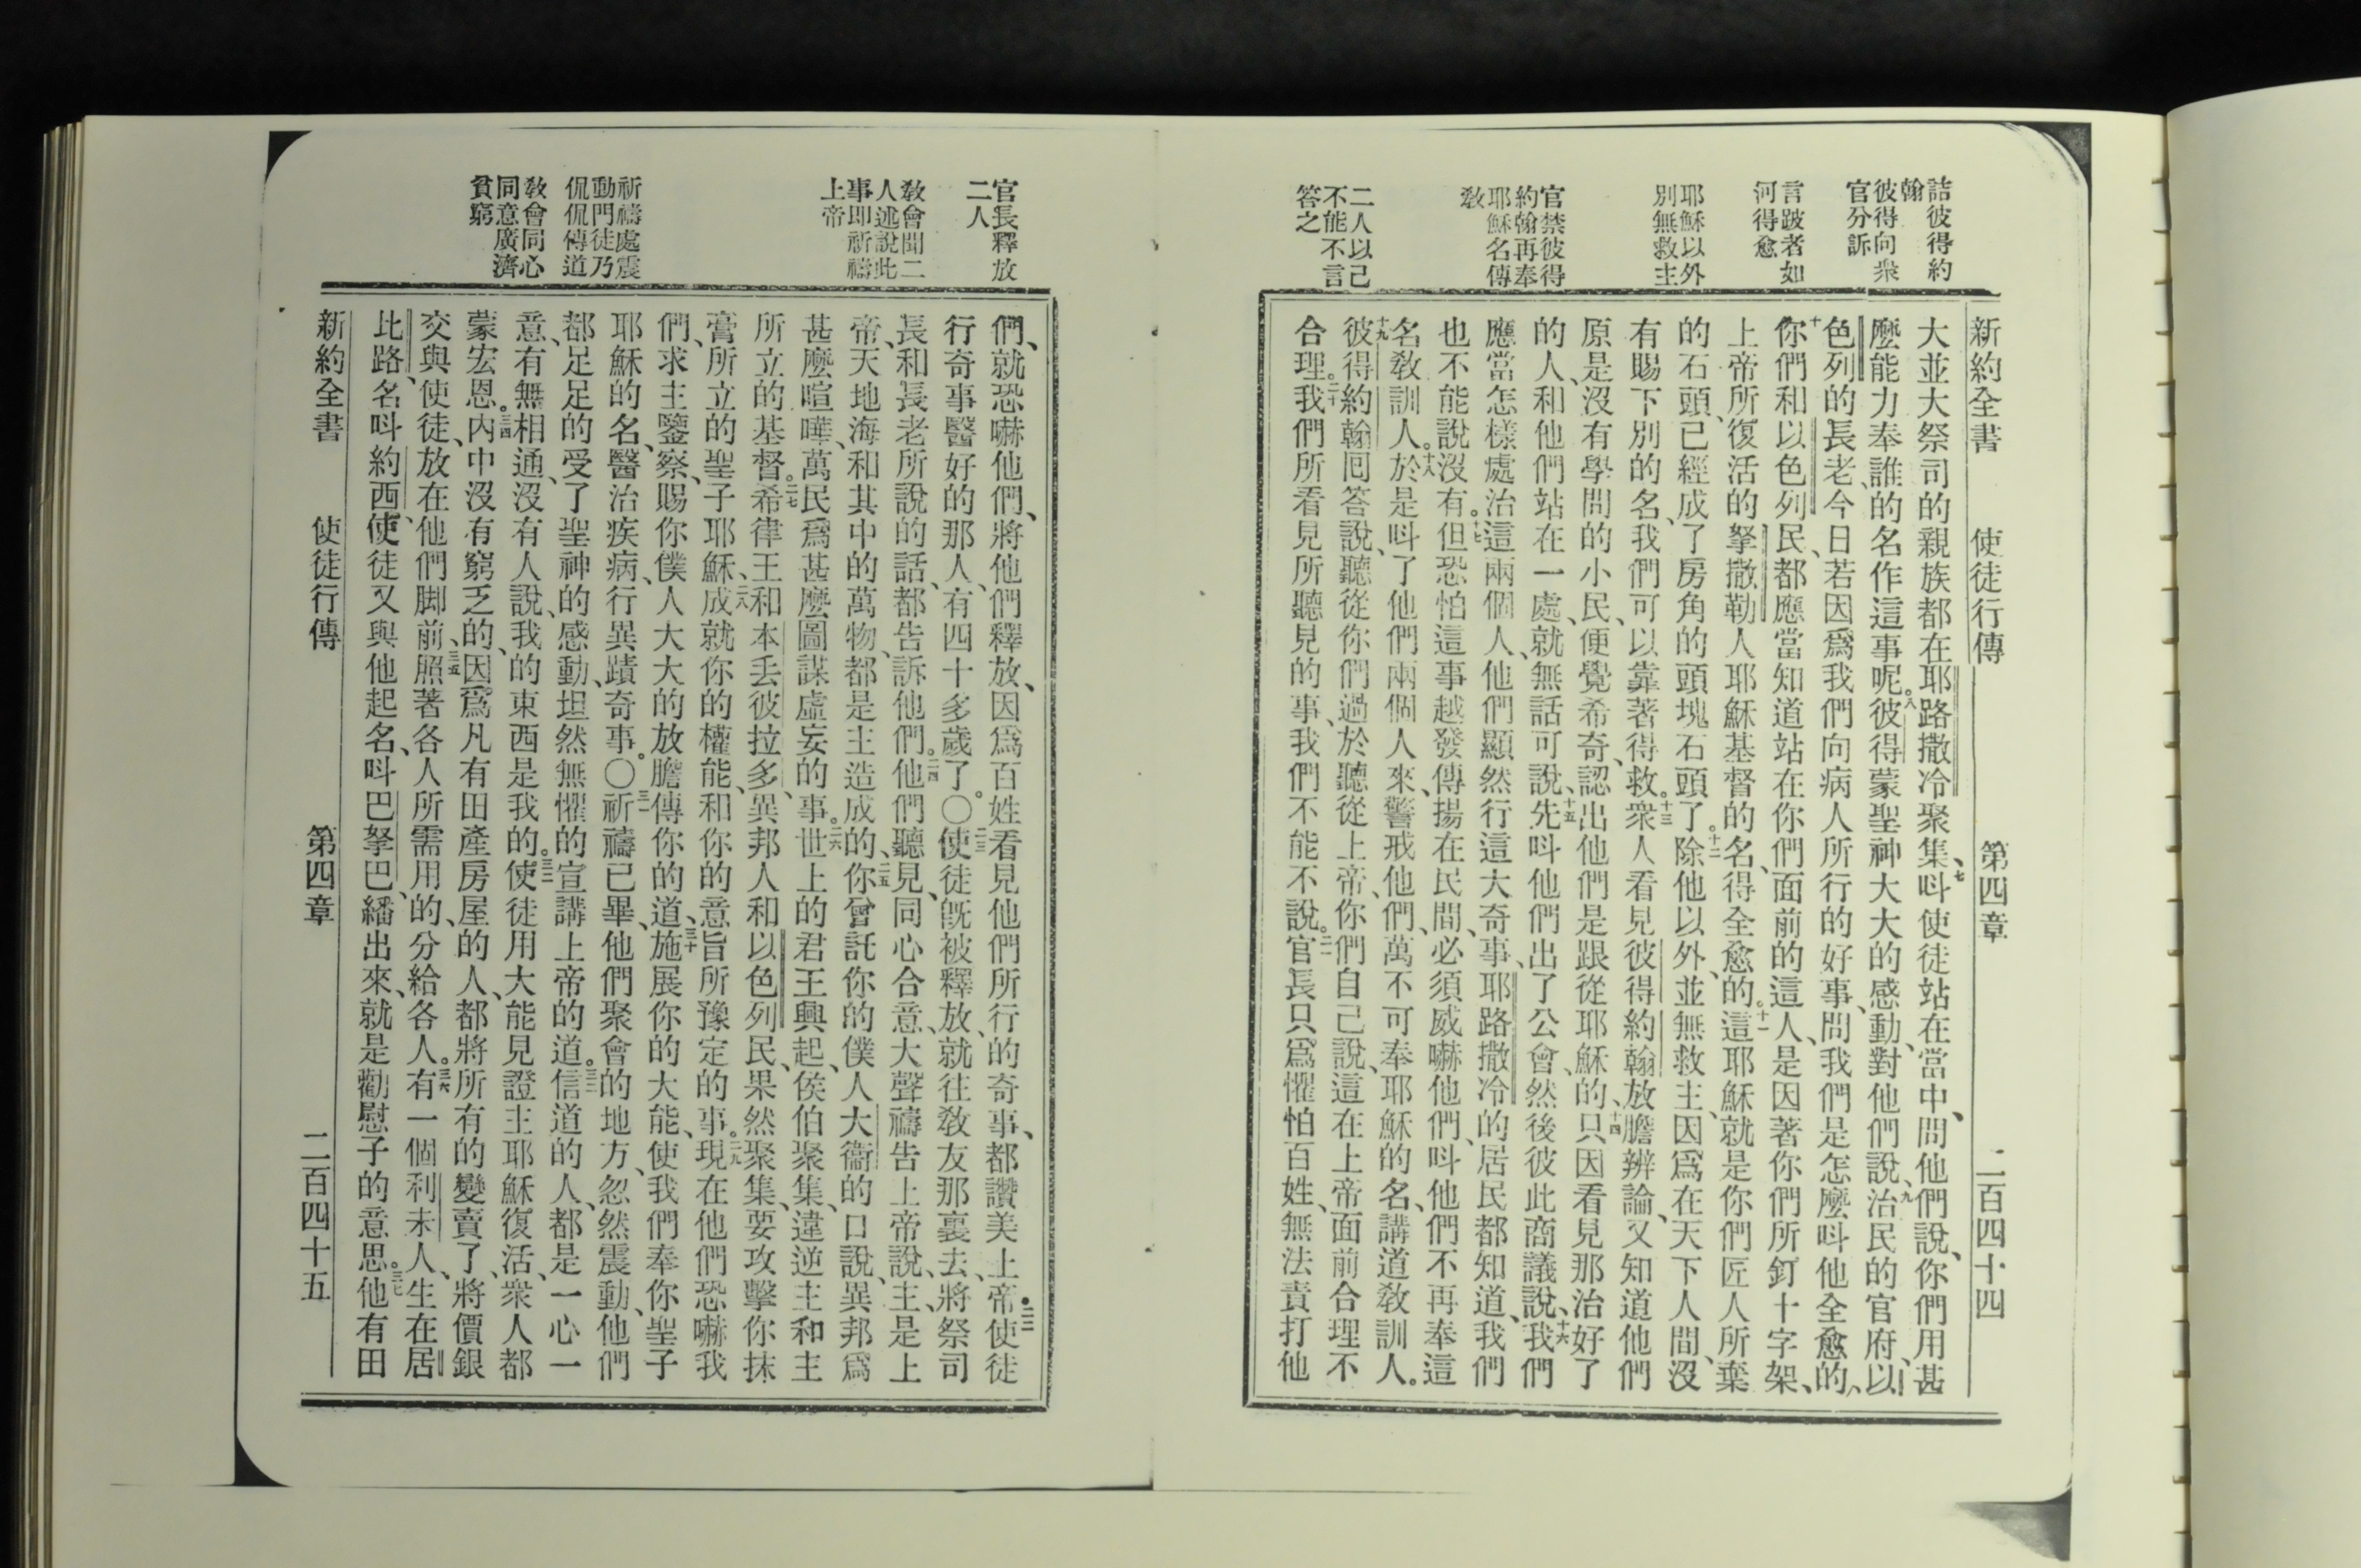 詰彼得約
翰
彼得向衆
官分訴
言跛者如
河得愈
耶穌以外
別無救主
官禁彼得
約翰再奉
耶穌名傳
敎
二人以己
不能不言
答之
新約全書 使徒行傳 第四章 二百四十四
大並大祭司的親族都在耶路撒冷聚集、七呌使徒站在當中、問他們說、你們用甚
麼能力奉誰的名作這事呢。八彼得蒙聖神大大的感動、對他們說、九治民的官府、以
色列的長老、今日若因爲我們向病人所行的好事、問我們是怎麼呌他全愈的、
十你們和以色列民、都應當知道站在你們面前的這人、是因著你們所釘十字架、
上帝所復活的拏撒勒人耶穌基督的名、得全愈的。十一這耶穌就是你們匠人所棄
的石頭、已經成了房角的頭塊石頭了。十二除他以外、並無救主、因爲在天下人間、沒
有賜下別的名、我們可以靠著得救。十三衆人看見彼得約翰放膽辨論、又知道他們
原是沒有學問的小民、便覺希奇、認出他們是跟從耶穌的、十四只因看見那治好了
的人、和他們站在一處、就無話可說、十五先呌他們出了公會、然後彼此商議說、十六我們
應當怎樣處治這兩個人、他們顯然行這大奇事、耶路撒冷的居民都知道、我們
也不能說沒有。十七但恐怕這事越發傳揚在民間、必須威嚇他們、呌他們不再奉這
名敎訓人。十八於是呌了他們兩個人來、警戒他們、萬不可奉耶穌的名、講道敎訓人。
十九彼得約翰囘答說、聽從你們過於聽從上帝、你們自己說、這在上帝面前合理不
合理。二十我們所看見所聽見的事、我們不能不說。二一官長只爲懼怕百姓、無法責打他
官長釋放
二人
敎會聞二
人述說此
事即祈禱
上帝
祈禱處震
動門徒乃
侃侃傳道
敎會同心
同意廣濟
貧窮
們、就恐嚇他們、將他們釋放、因爲百姓看見他們所行的奇事、都讚美上帝。二二使徒
行奇事醫好的那人、有四十多歲了。〇二三使徒旣被釋放、就往敎友那裏去、將祭司
長和長老所說的話、都告訴他們。二四他們聽見、同心合意、大聲禱告上帝說、主、是上
帝、天地海和其中的萬物、都是主造成的、二五你曾託你的僕人大衞的口說、異邦爲
甚麼喧嘩、萬民爲甚麼圖謀虛妄的事。二六世上的君王興起、侯伯聚集、違逆主和主
所立的基督。二七希律王和本丢彼拉多、異邦人和以色列民、果然聚集、要攻擊你抹
膏所立的聖子耶穌、二八成就你的權能、和你的意旨所豫定的事。二九現在他們恐嚇我
們、求主鑒察、賜你僕人大大的放膽傳你的道、三十施展你的大能、使我們奉你聖子
耶穌的名、醫治疾病、行異蹟奇事。〇三一祈禱已畢、他們聚會的地方、忽然震動、他們
都足足的受了聖神的感動、坦然無懼的宣講上帝的道。三二信道的人、都是一心一
意、有無相通、沒有人說、我的東西是我的。三三使徒用大能見證主耶穌復活、衆人都
蒙宏恩。三四內中沒有窮乏的、因爲凡有田產房屋的人、都將所有的變賣了、將價銀
交與使徒、放在他們脚前、三五照著各人所需用的、分給各人。三六有一個利未人、生在居
比路、名呌約西、使徒又與他起名、呌巴拏巴、繙出來、就是勸慰子的意思。三七他有田
新約全書 使徒行傳 第四章 二百四十五